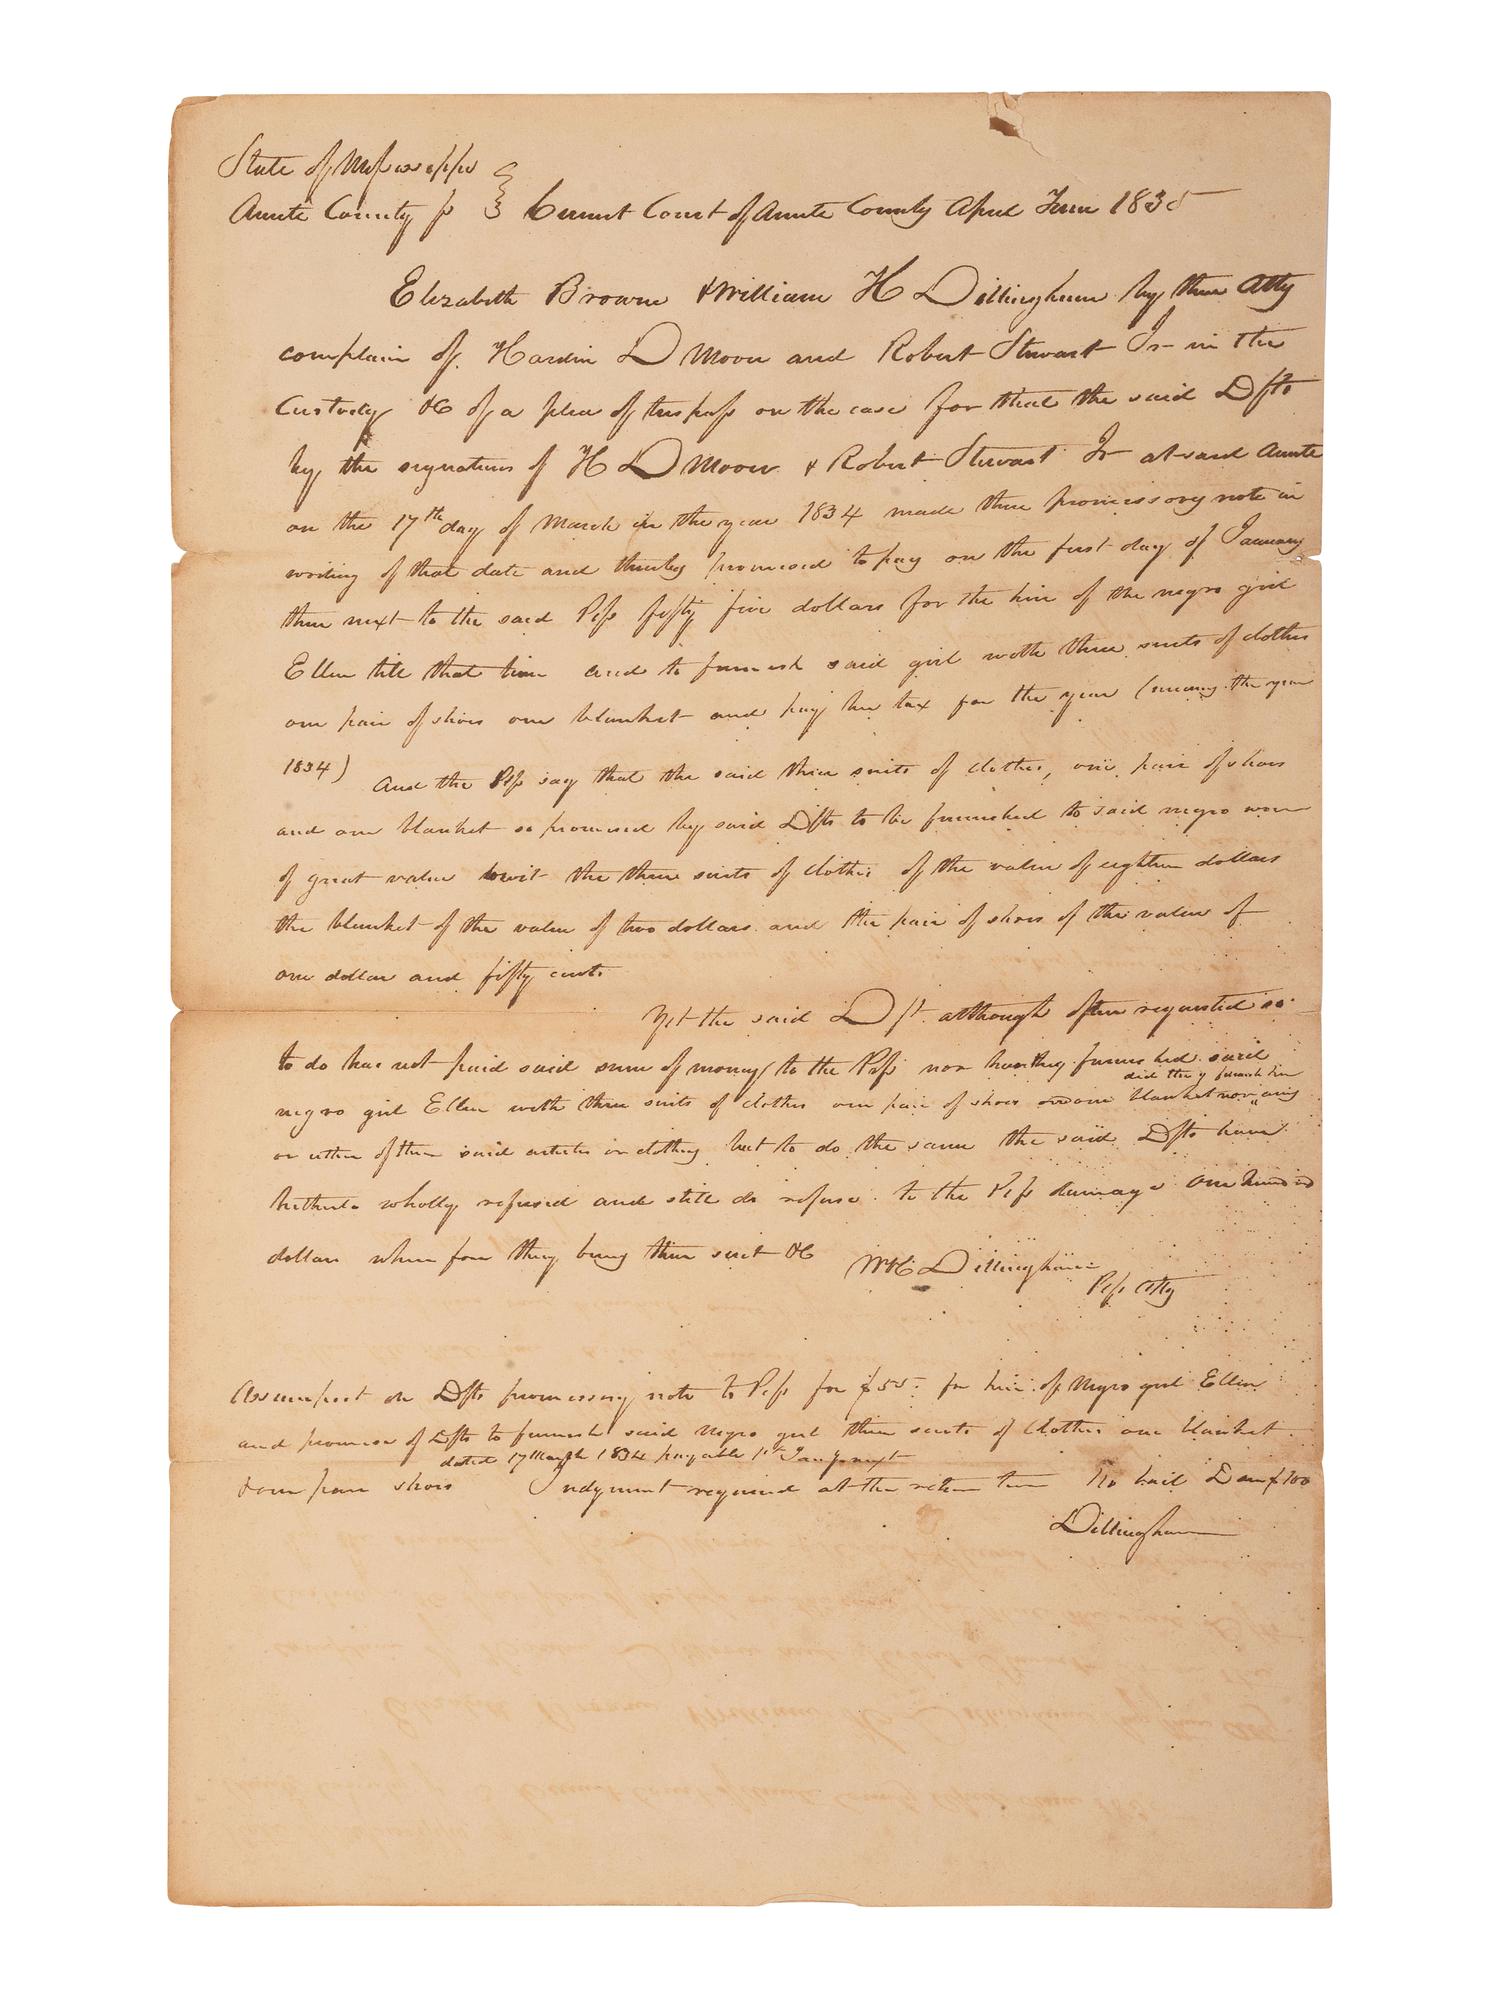 State of Mississippi
Amite County ss } Circuit Court of Amite County April Term 1835
Elizabeth Browne & William H Dillingham by their Atty
complain of Hardin D Moore and Robert Stewart Jr in the
Custody &c of a plea of trespass on the case for that the said Dfts
by the signatures of H D Moore & Robert Stewart Jr at said Amite
on the 17th day of March in the year 1834 made their promissory note in
writing of that date and thereby promised to pay on the first day of January
then next to the said Plfs fifty five dollars for the hire of the negro girl
Ellen till that time and to furnish said girl with three suits of clothes
one pair of shoes one blanket and pay her tax for the year (meaning the year
1834) And the Plfs say that the said three suits of clothes, one pair of shoes
and one blanket so promised by said Dfts to be furnished to said negro were
of great value towit the three suits of clothes of the value of eighteen dollars
the blanket of the value of two dollars and the pair of shoes of the value of
one dollar and fifty cents
Yet the said Dft although often requested so
to do has not paid said sum of money to the Plfs nor has they furnished said
did they furnish her
negro girl Ellen with three suits of clothes one pair of shoes or one blanket nor any
or either of them said articles or clothing but to do the same the said Dfts have
hitherto wholly refused and still do refuse to the Plfs damage one hundred
dollars wherefore they bring their suit &c WH Dillingham
Plfs Atty
Assumpsit on Dfts promissory note to Plfs for $55 for hire of Negro girl Ellen
and promise of Dfts to furnish said Negro girl three suits of clothes one blanket
dated 17 March 1834 payable 1st Jany next
& one pair shoes Judgment required at the return term No bail Dam $100
Dillingham